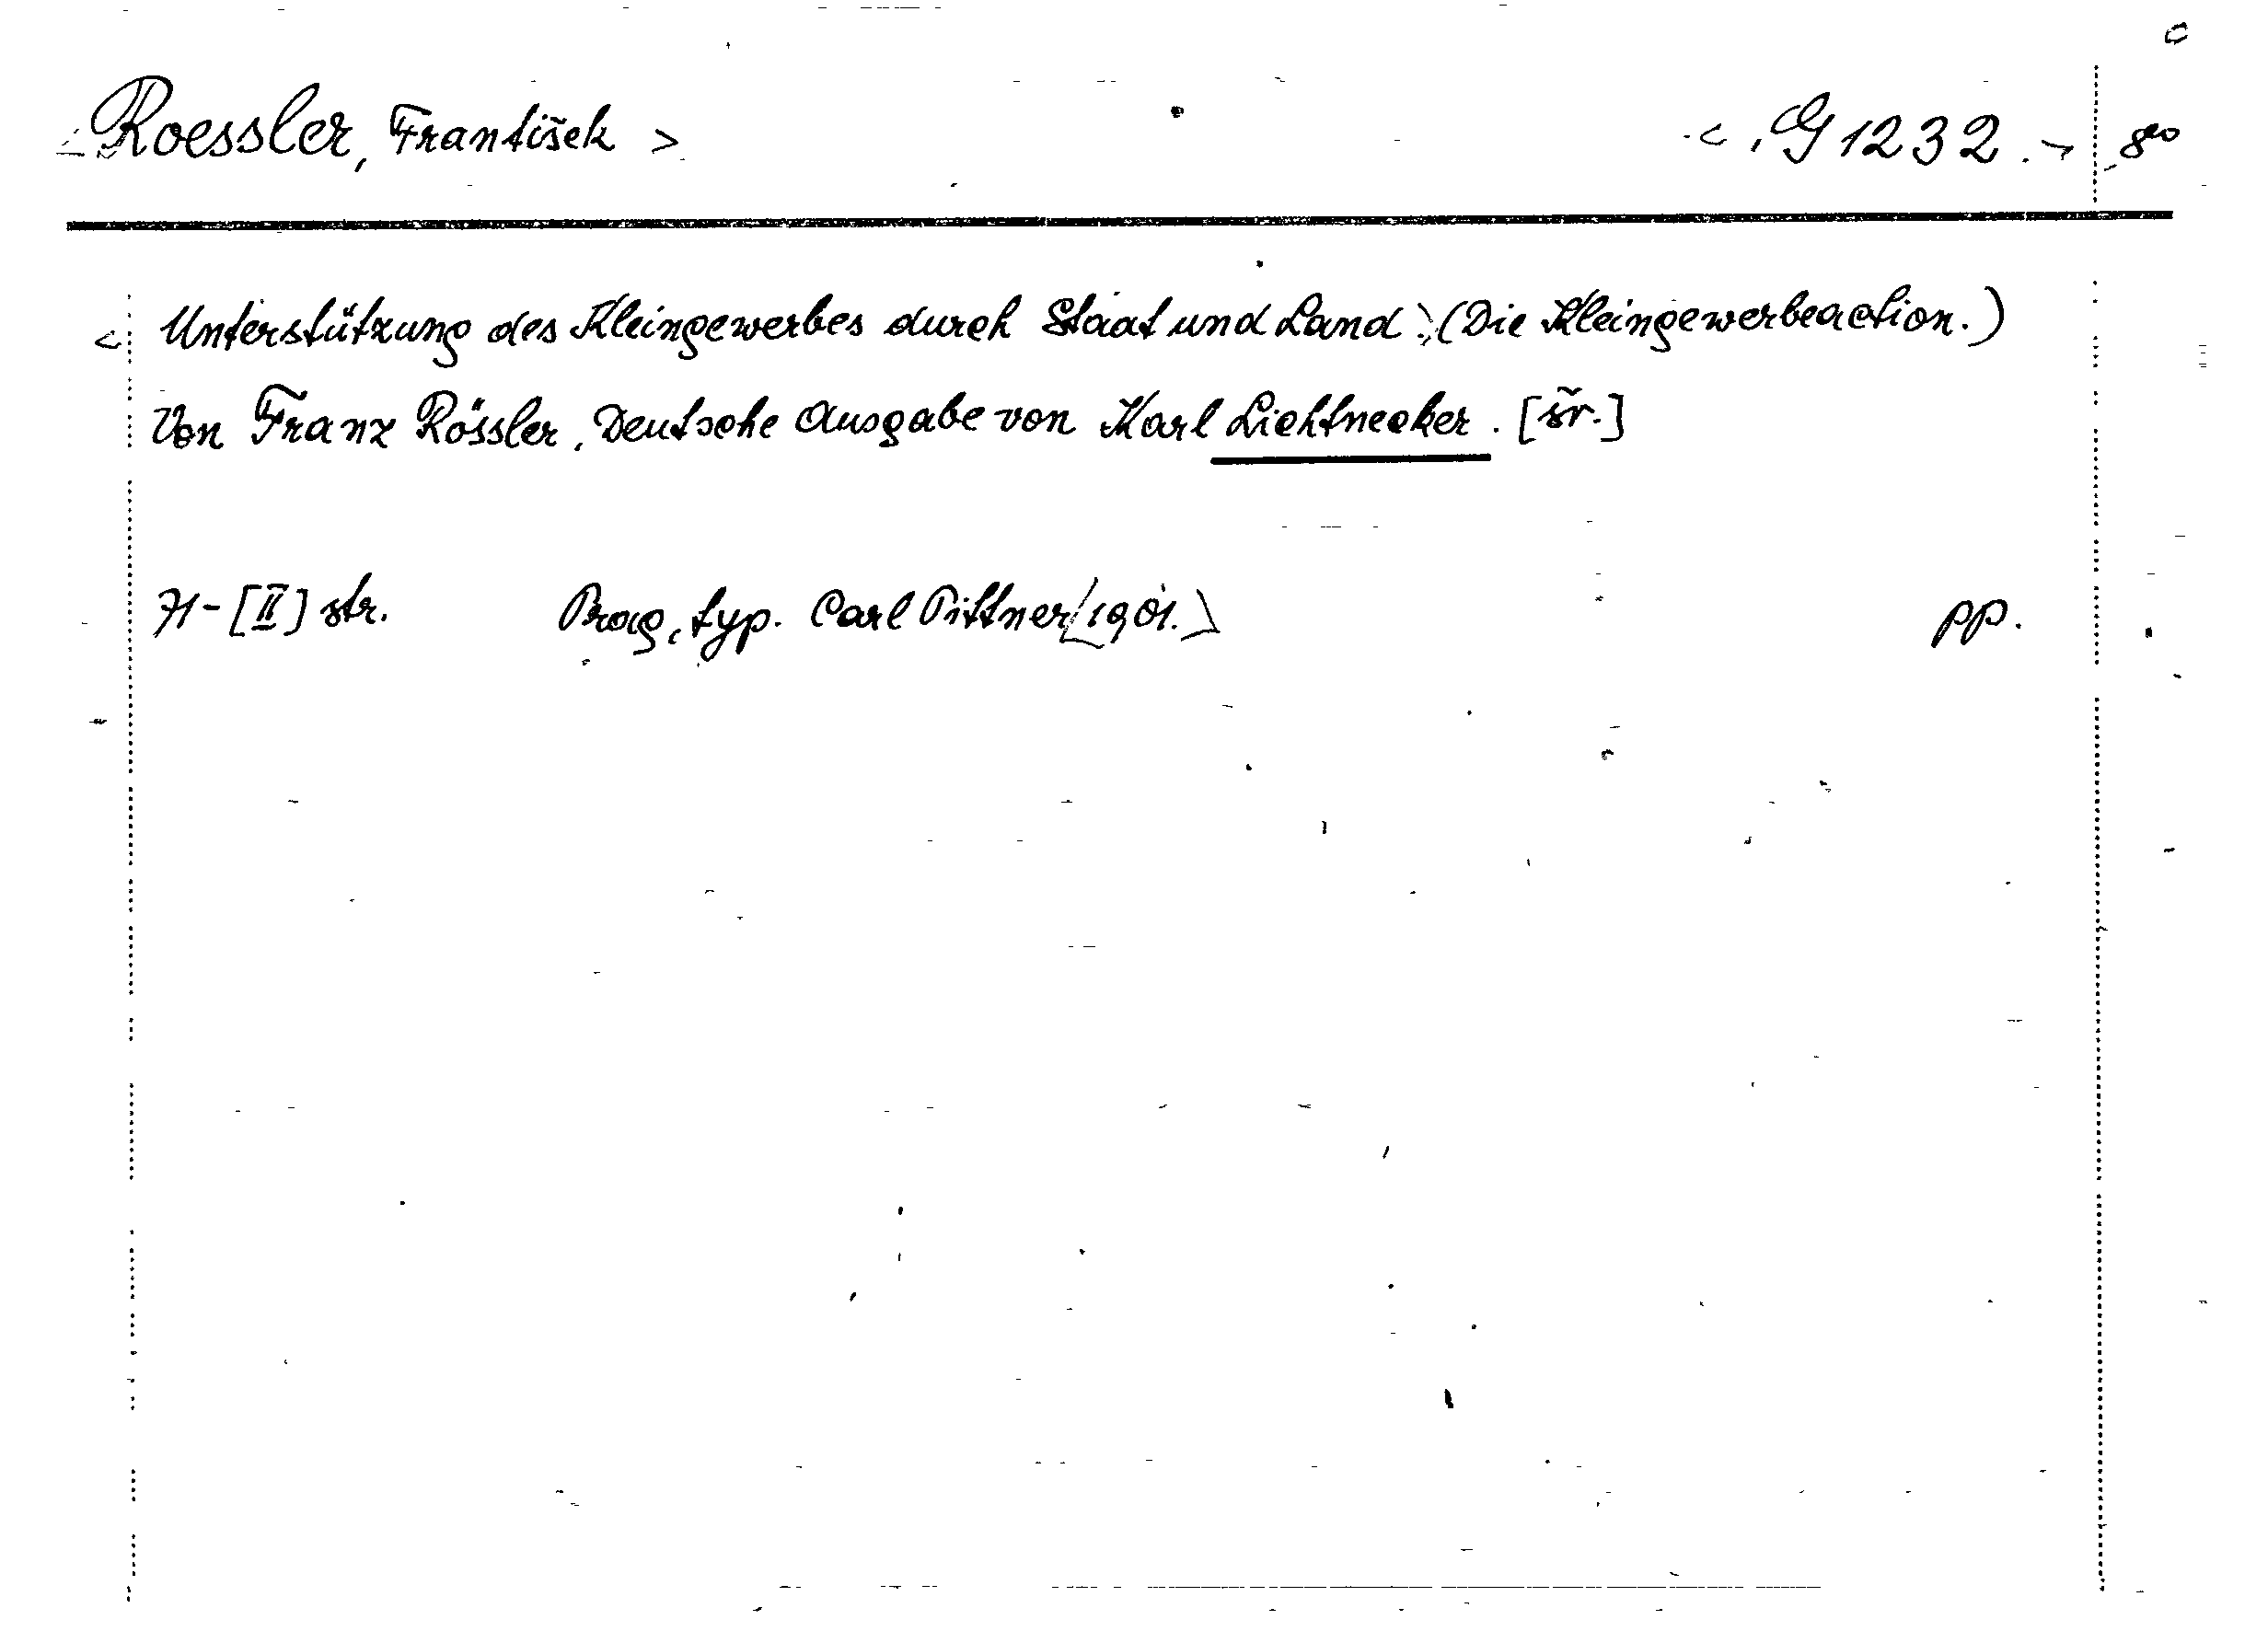 < Roessler, František > < G 1232. > 8°
< Unterstützung des Kleingewerbes durch Staat und Land.> (Die Kleingewerbeaction.)
Von Franz Rössler. Deutsche Ausgabe von Karl Lichtnecker. [šr.]
71-[II] str. Prag, typ. Carl Pittner <1901.> pp.